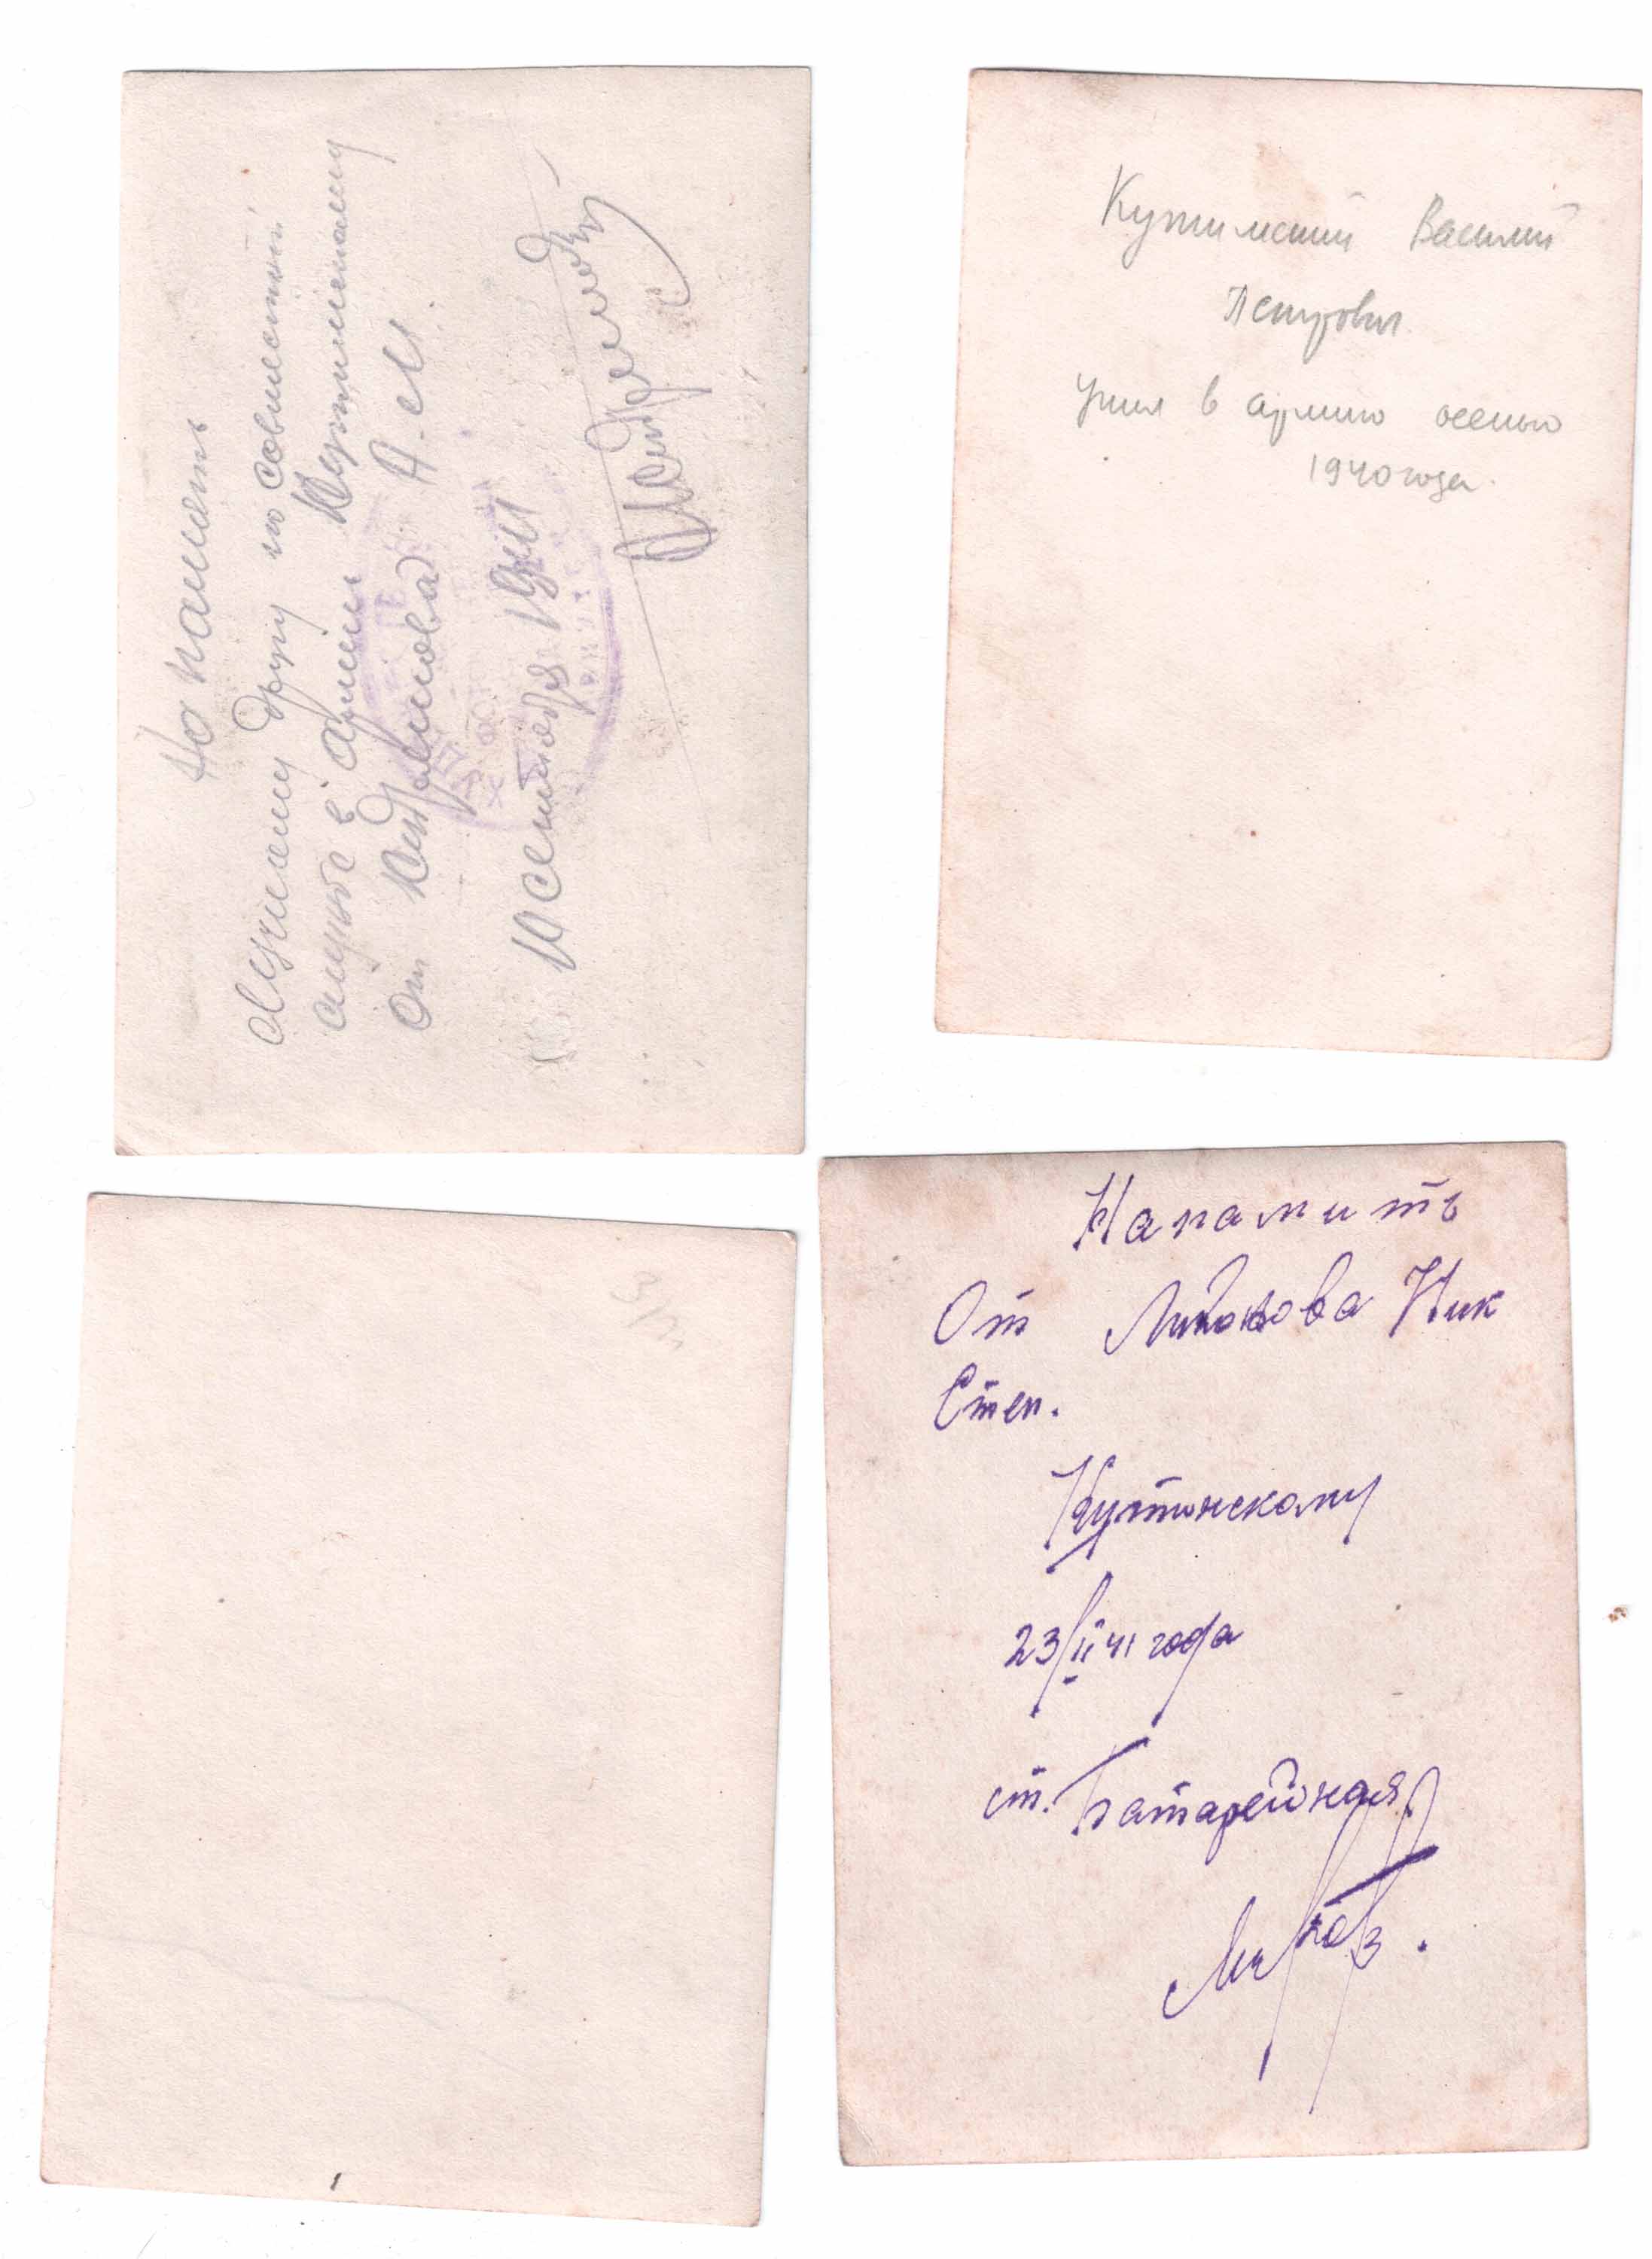 На память
Лучшему другу по совместной
службе в армии Кутимскому
От Кудрешова А.М.
10 сентября 1941
Кутимский Василий
Петрович
Ушел в армию осенью
1940 года.
Напамить
От Ник
Степ.
Кутинскому
23/II 41 года
ст. Батарейная